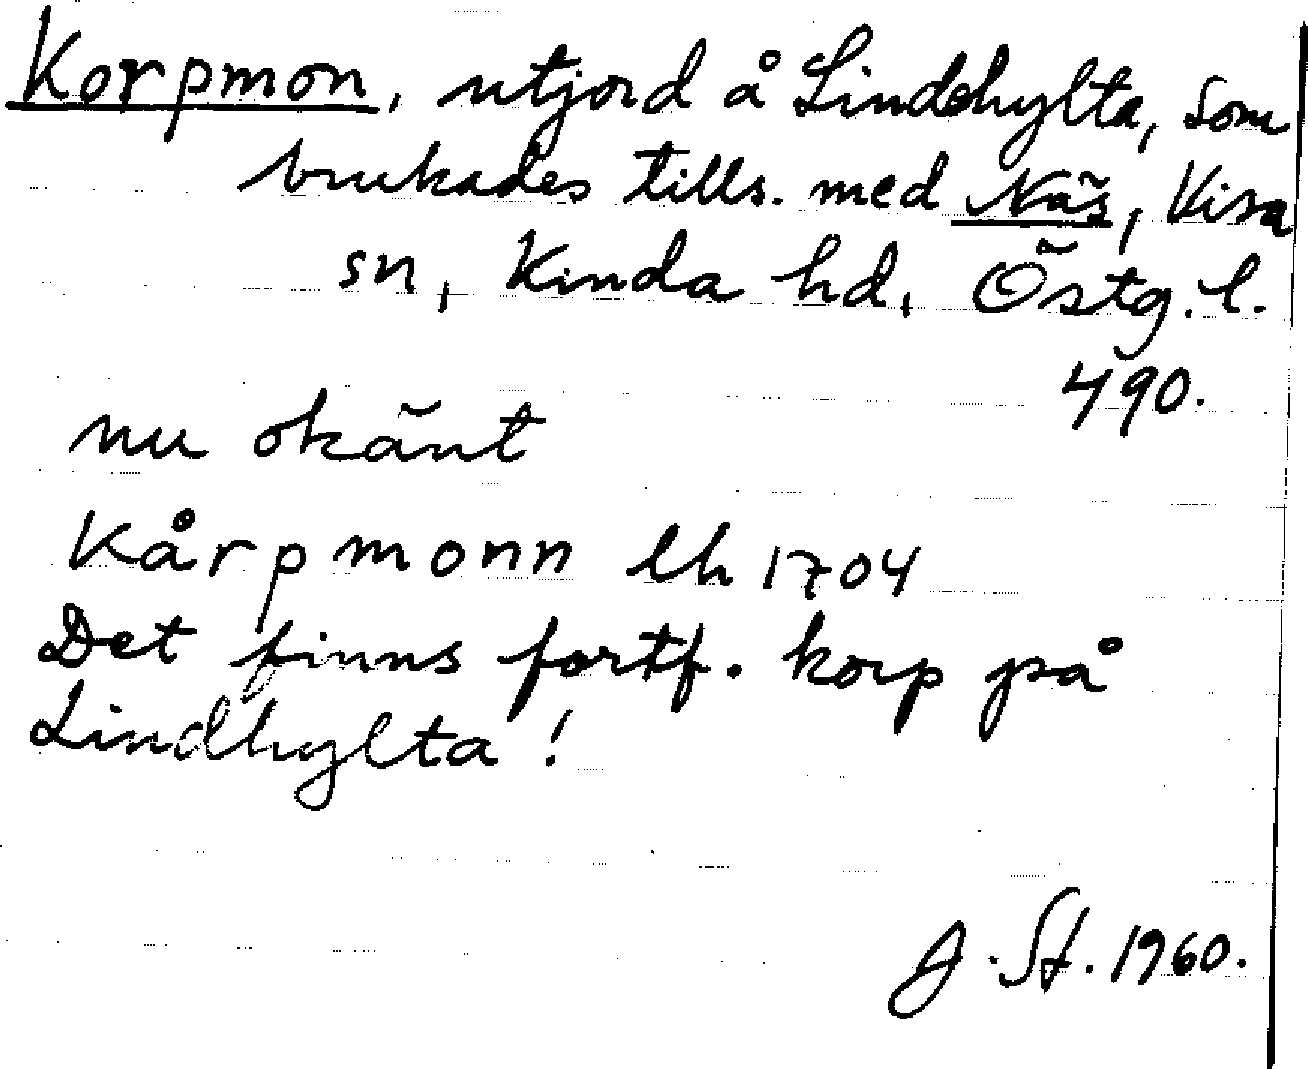 Korpmon, utjord å Lindehylta, som
brukades tills. med Näs, Kisa
sn, Kinda hd, Östg. l.
490.
nu okänt
Kårpmonn lh 1704
Det finns fortf. korp på
Lindhylta!
J. St. 1960.